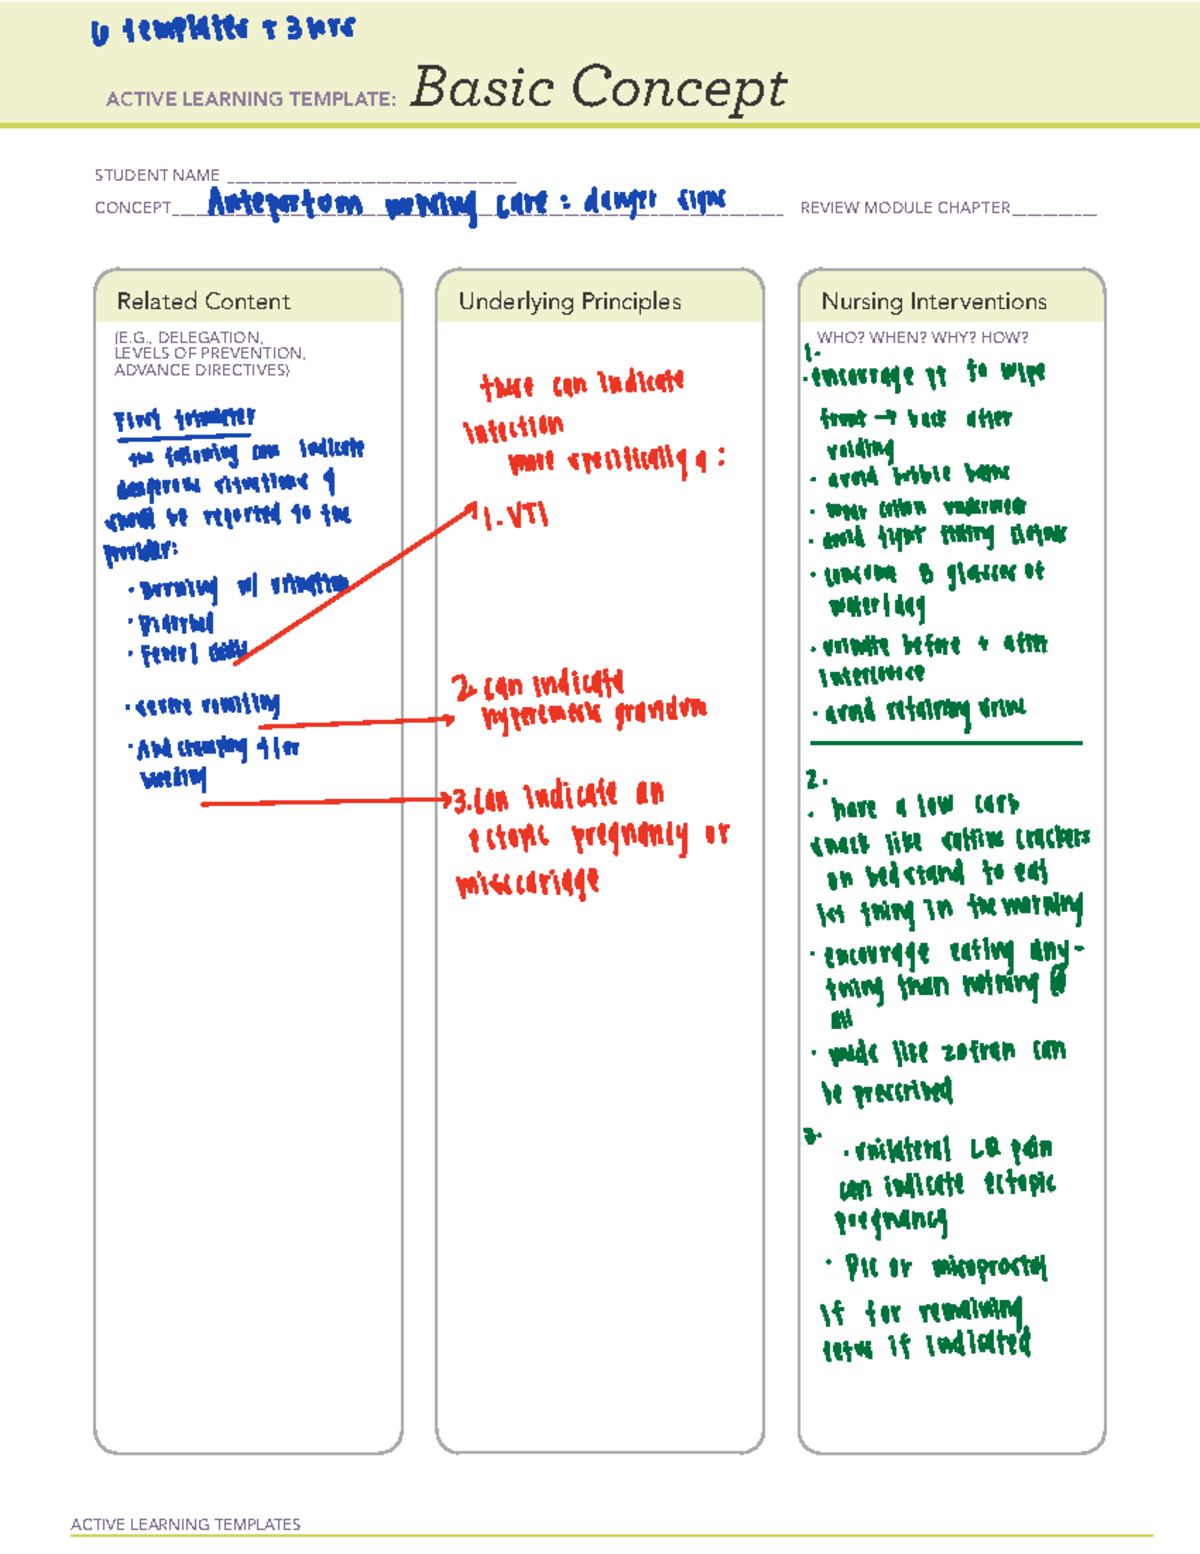 6 templates + 3 hrs
ACTIVE LEARNING TEMPLATE: Basic Concept
STUDENT NAME
CONCEPT Antepartom nursing care: danger signs
REVIEW MODULE CHAPTER
Related Content
(E.G., DELEGATION,
LEVELS OF PREVENTION,
ADVANCE DIRECTIVES)
First trimester
the following can indicate
dangerous situations &
should be reported to the
provider:
· Burning w/ urination
· Diarrhea
· Fever / chills
· severe vomiting
· Abd cramping & / or
bleeding
Underlying Principles
these can indicate
infection
more specifically a :
1. UTI
2. can indicate
hyperemesis gravidum
3. can indicate an
ectopic pregnancy or
misscariage
Nursing Interventions
WHO? WHEN? WHY? HOW?
1.
· encourage pt to wipe
front → back after
voiding
· avoid bubble baths
· wear cotton underwear
· avoid tight fitting clothes
· consume 8 glasses of
water/day
· urinate before + after
intercourse
· avoid retaining urine
2.
· have a low carb
snack like saltine crackers
on bedstand to eat
1st thing in the morning
· encourage eating any-
thing than nothing @
all
· meds like zofran can
be prescribed
3.
· unilateral LQ pain
can indicate ectopic
pregnancy
· D&C or misoprostol
if for remaining
if indicated
ACTIVE LEARNING TEMPLATES